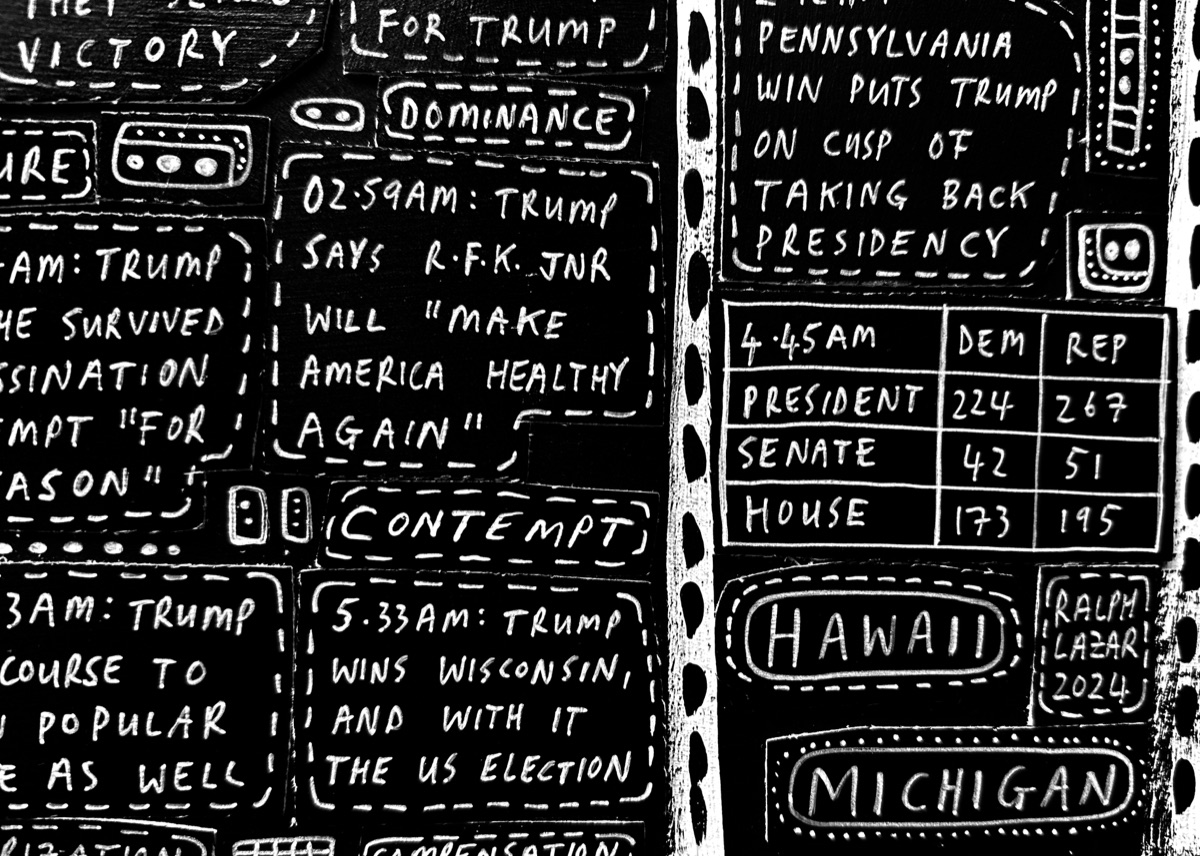 VICTORY
FOR TRUMP
DOMINANCE
URE
02.59AM: TRUMP
SAYS R.F.K. JNR
WILL "MAKE
AMERICA HEALTHY
AGAIN"
AM: TRUMP
HE SURVIVED
SSINATION
MPT "FOR
ASON"
CONTEMPT
3AM: TRUMP
COURSE TO
POPULAR
E AS WELL
5.33AM: TRUMP
WINS WISCONSIN,
AND WITH IT
THE US ELECTION
RIZATION
COMPENSATION
PENNSYLVANIA
WIN PUTS TRUMP
ON CUSP OF
TAKING BACK
PRESIDENCY
4.45AM DEM REP
PRESIDENT 224 267
SENATE 42 51
HOUSE 173 195
HAWAII
RALPH
LAZAR
2024
MICHIGAN